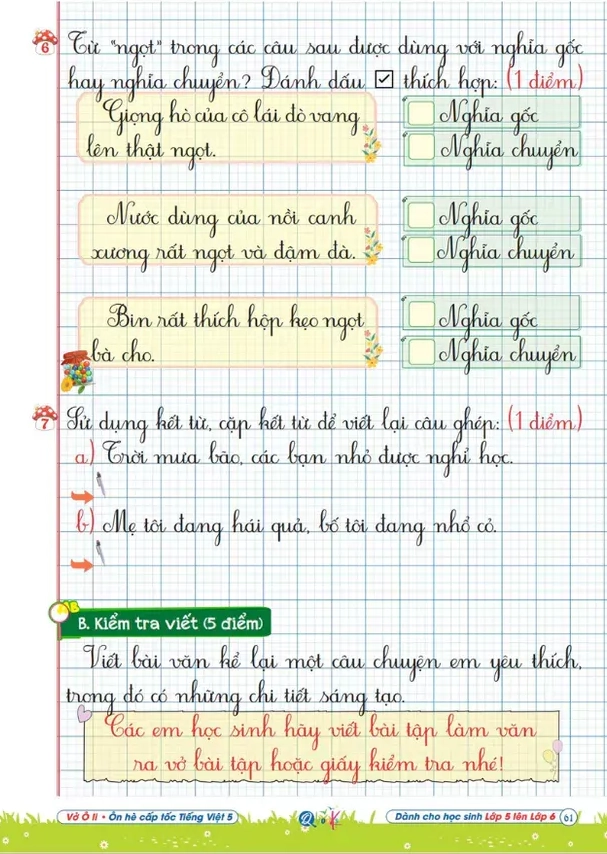 6 Từ "ngọt" trong các câu sau được dùng với nghĩa gốc
hay nghĩa chuyển? Đánh dấu ☑ thích hợp: (1 điểm)
Giọng hò của cô lái đò vang
lên thật ngọt.
Nghĩa gốc
Nghĩa chuyển
Nước dùng của nồi canh
xương rất ngọt và đậm đà.
Nghĩa gốc
Nghĩa chuyển
Bin rất thích hộp kẹo ngọt
bà cho.
Nghĩa gốc
Nghĩa chuyển
7 Sử dụng kết từ, cặp kết từ để viết lại câu ghép: (1 điểm)
a) Trời mưa bão, các bạn nhỏ được nghỉ học.
b) Mẹ tôi đang hái quả, bố tôi đang nhổ cỏ.
B. Kiểm tra viết (5 điểm)
Viết bài văn kể lại một câu chuyện em yêu thích,
trong đó có những chi tiết sáng tạo.
Các em học sinh hãy viết bài tập làm văn
ra vở bài tập hoặc giấy kiểm tra nhé!
Vở Ô li • Ôn hè cấp tốc Tiếng Việt 5
Dành cho học sinh Lớp 5 lên Lớp 6 61